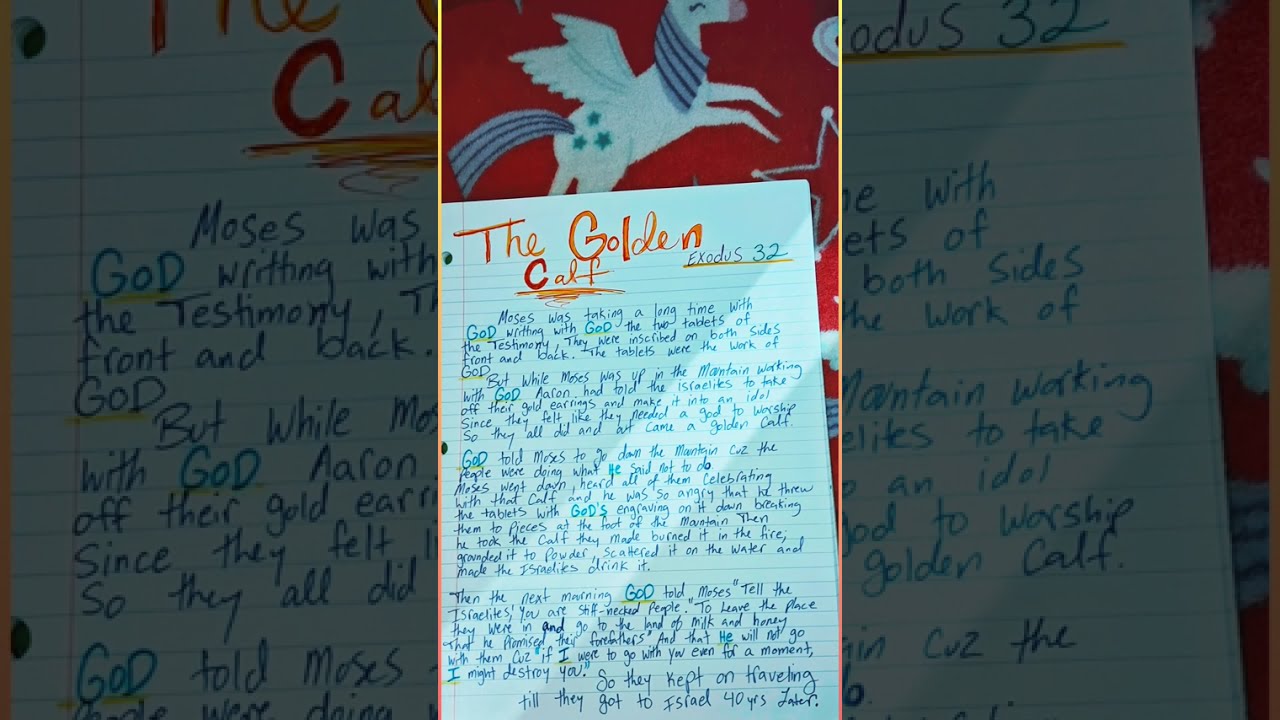 The Golden
Calf
EXODUS 32
Moses was taking a long time with
GOD writting with GOD the two tablets of
the Testimony, They were inscribed on both sides
front and back. The tablets were the work of
GOD
But while Moses was up in the Mantain working
with GOD Aaron had told the israelites to take
off their gold earrings and make it into an idol
Since they felt like they needed a god to worship
So they all did and out came a golden Calf.
GOD told Moses to go down the Mantain cuz the
People were doing what He said not to do.
Moses went down, heard all of them Celebrating
with that Calf and he was so angry that he threw
the tablets with GOD'S engraving on it down breaking
them to pieces at the foot of the Mantain Then
he took the Calf they made burned it in the fire,
grounded it to Powder, scattered it on the water and
made the Israelites drink it.
Then the next mourning GOD told Moses "Tell the
Israelites! You are Stiff-necked People." To Leave the Place
they were in and go to the land of milk and honey
That he Promised their forefathers" And that He will not go
with them Cuz "if I were to go with you even for a moment,
I might destroy you."
So they kept on traveling
till they got to Israel 40 yrs Later.